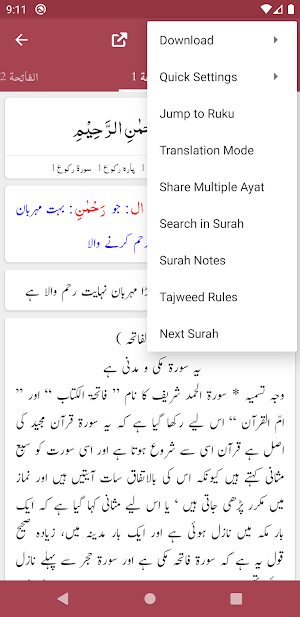 9:11
الفاتحة 2
1
Download
Quick Settings
Jump to Ruku
Translation Mode
Share Multiple Ayat
Search in Surah
Surah Notes
Tajweed Rules
Next Surah
الرَّحِيْمِ
پارہ رکوع 1 سورة رکوع 1
ال: جو رَحْمٰنِ: بہت مہربان
رحم کرنے والا
مہربان نہایت رحم والا ہے
الفاتحہ )
یہ سورۃ مکی و مدنی ہے
وجہ تسمیہ * سورۃ الحمد شریف کا نام ” فاتحۃ الکتاب “ اور ”
امّ القرآن “ اس لیے رکھا گیا ہے کہ یہ سورۃ قرآن مجید کی
اصل ہے قرآن اسی سے شروع ہوتا ہے اور اسی سورت کو سبع
مثانی کہتے ہیں کیونکہ اس کی بالاتفاق سات آیتیں ہیں اور نماز
میں مکرر پڑھی جاتی ہیں ‘ یا اس لیے مثانی کہا گیا ہے کہ ایک
بار مکہ میں نازل ہوئی ہے اور ایک بار مدینہ میں، زیادہ صحیح
قول یہ ہے کہ سورۃ فاتحہ مکی ہے اور سورۃ حجر سے پہلے نازل